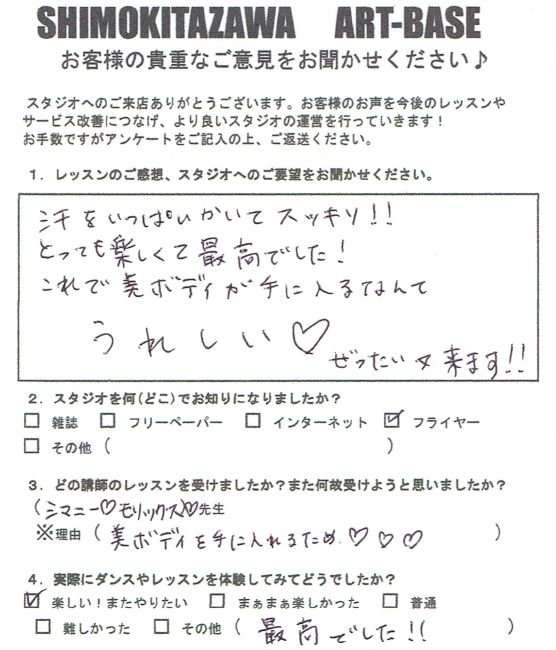 SHIMOKITAZAWA ART-BASE
お客様の貴重なご意見をお聞かせください♪
スタジオへのご来店ありがとうございます。お客様のお声を今後のレッスンや
サービス改善につなげ、より良いスタジオの運営を行っていきます!
お手数ですがアンケートをご記入の上、ご返送ください。
1.レッスンのご感想、スタジオへのご要望をお聞かせください。
汗をいっぱいかいてスッキリ!!
とっても楽しくて最高でした!
これで美ボディが手に入るなんて
うれしい♡
ぜったい又来ます!!
2.スタジオを何(どこ)でお知りになりましたか?
□ 雑誌 □ フリーペーパー □ インターネット ☑ フライヤー
□ その他( )
3.どの講師のレッスンを受けましたか?また何故受けようと思いましたか?
(シマニー♡モリックス)♡先生
※理由(美ボディを手に入れるため♡♡♡)
4.実際にダンスやレッスンを体験してみてどうでしたか?
☑ 楽しい!またやりたい □ まぁまぁ楽しかった □ 普通
□ 難しかった □ その他(最高でした!!)